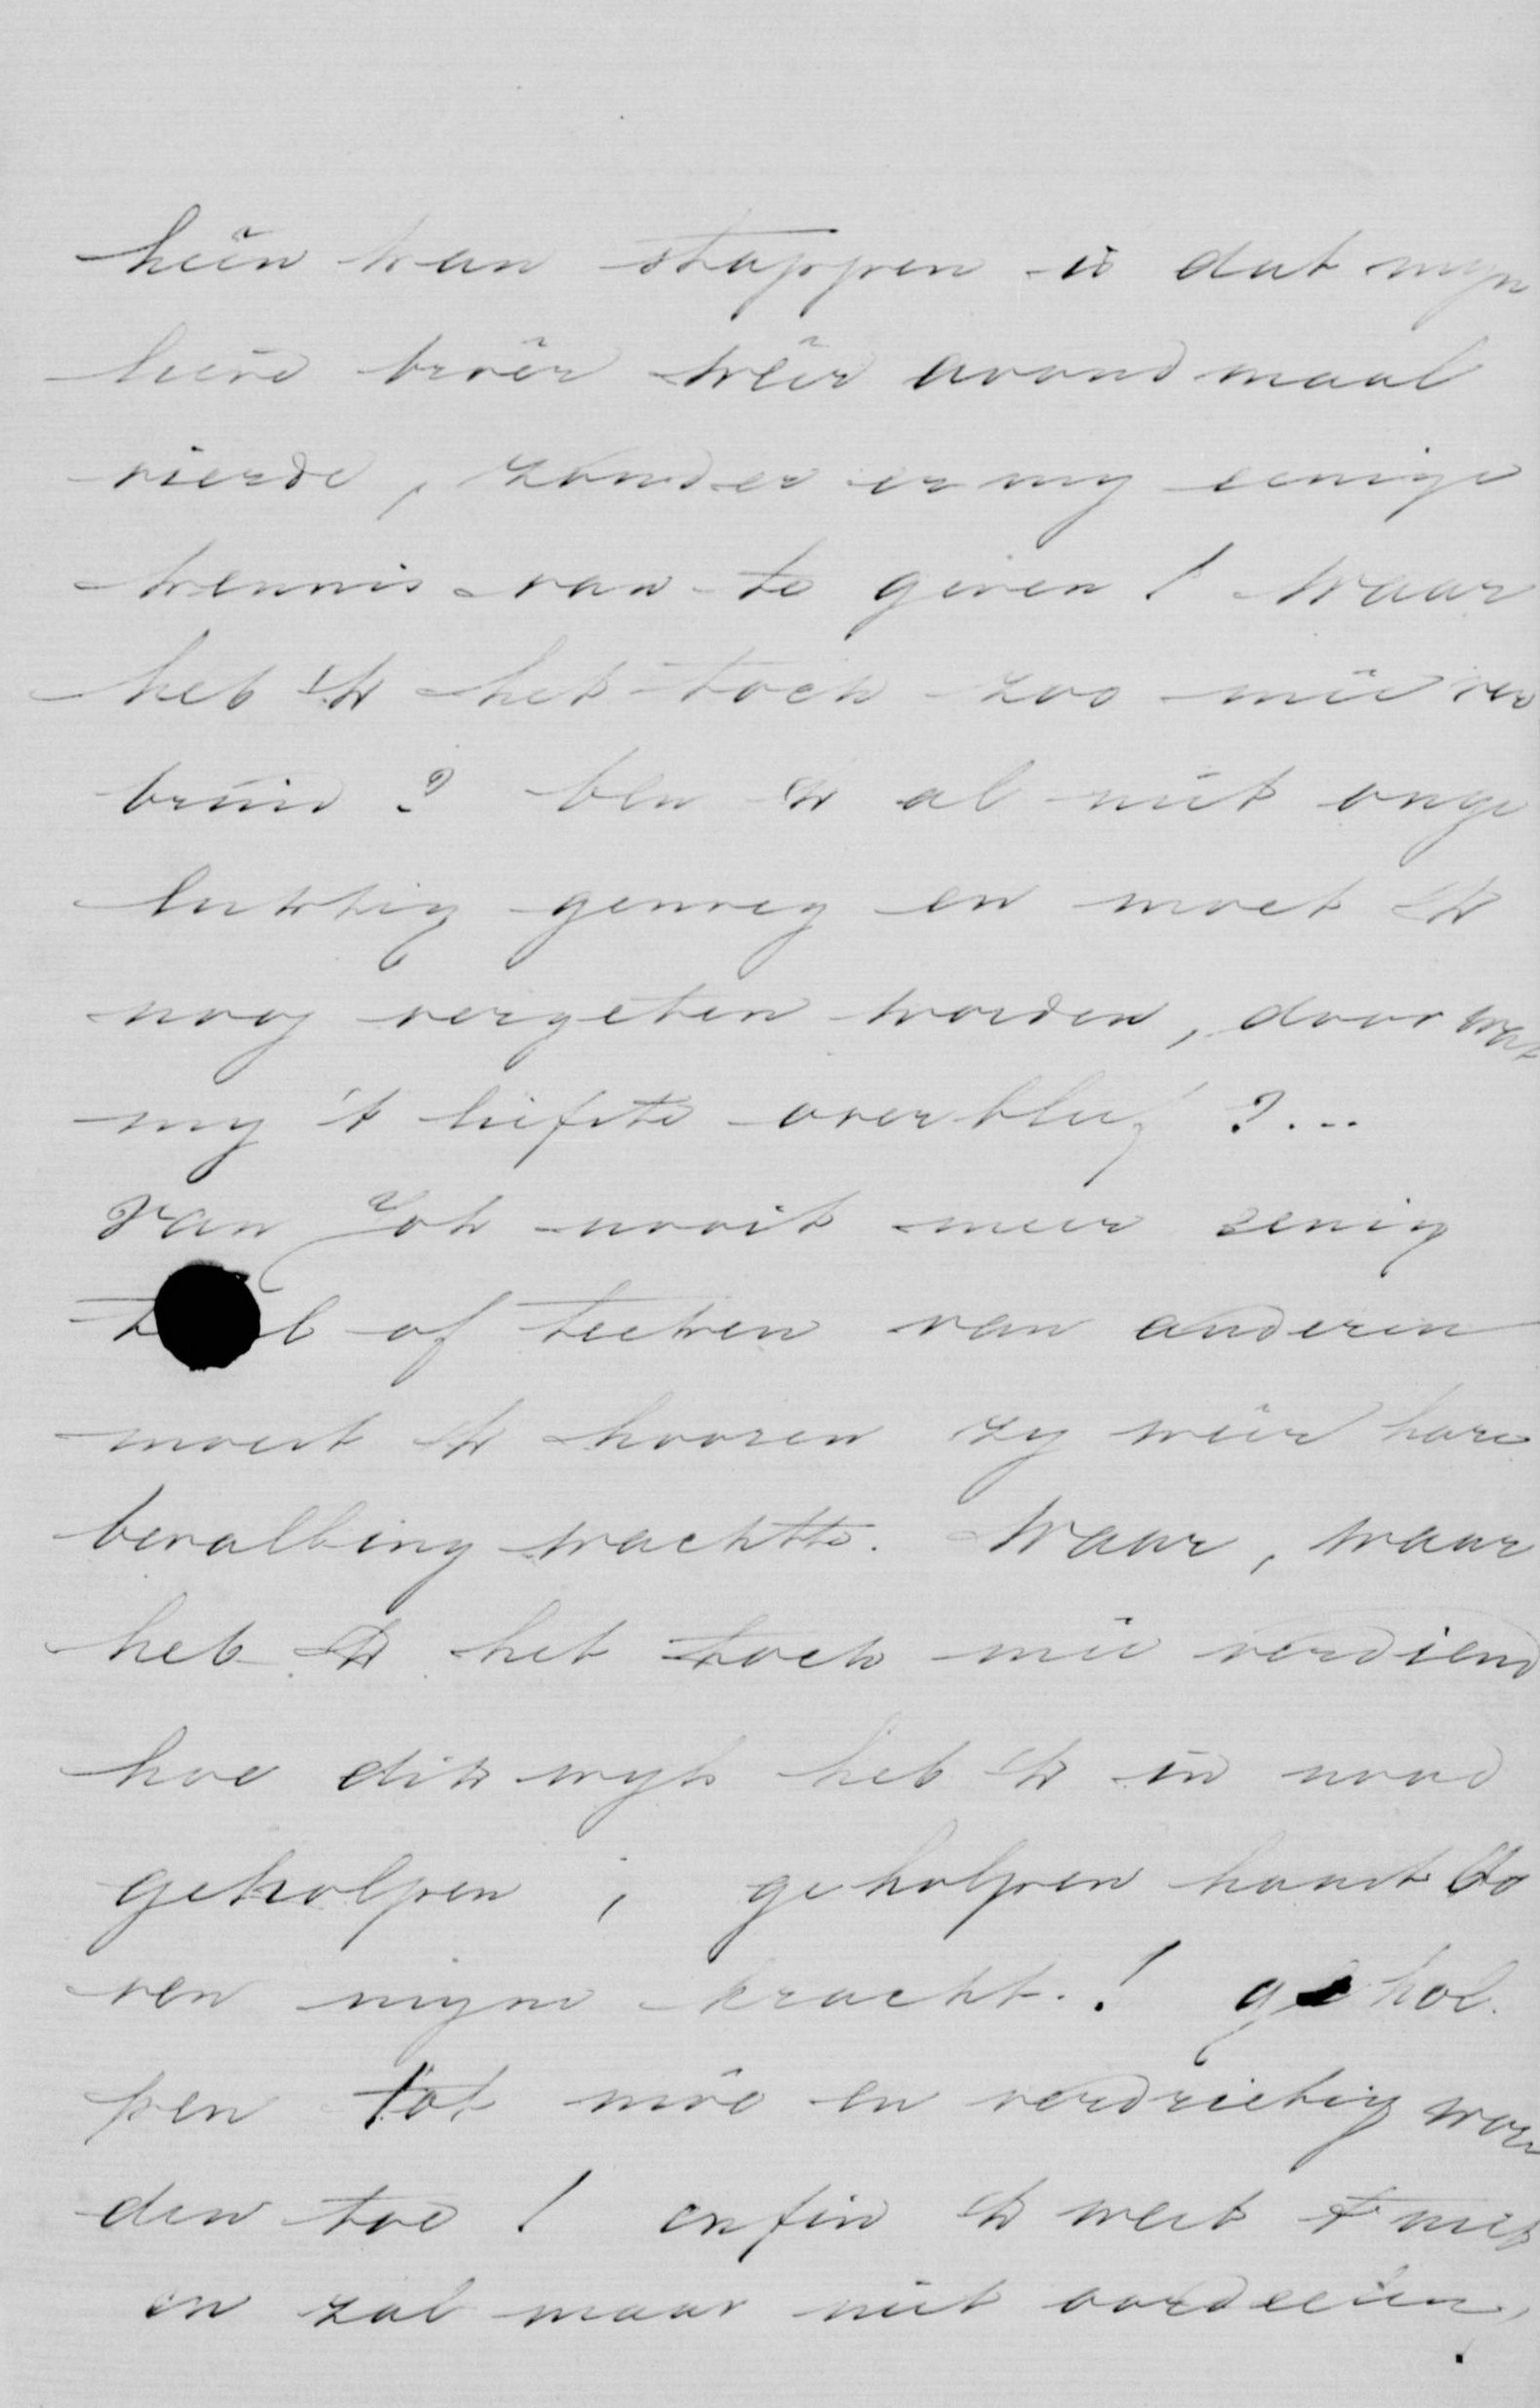 heen kan stappen is dat mijn
lieve broêr wêer avondmaal
vierde, zonder er mij eenige
kennis van te geven! Waar
heb ik het toch zoo mêe ver
bruid? ben ik al niet onge
lukkig genoeg en moet ik
noog vergeten worden, door wat
mij 't liefste overbleef?...
Van Zoh nooit meer eenig
of teeken van anderen
moest ik hooren zij wêer hare
bevalling wachtte. Waar, waar
heb ik het toch mêe verdiend
hoe dikwijls heb ik in nood
geholpen, geholpen haast bo
ven mijne kracht! gehol
pen tot môe en verdrietig wor
den toe! enfin ik weet 't niet
en zal maar niet oordeelen,